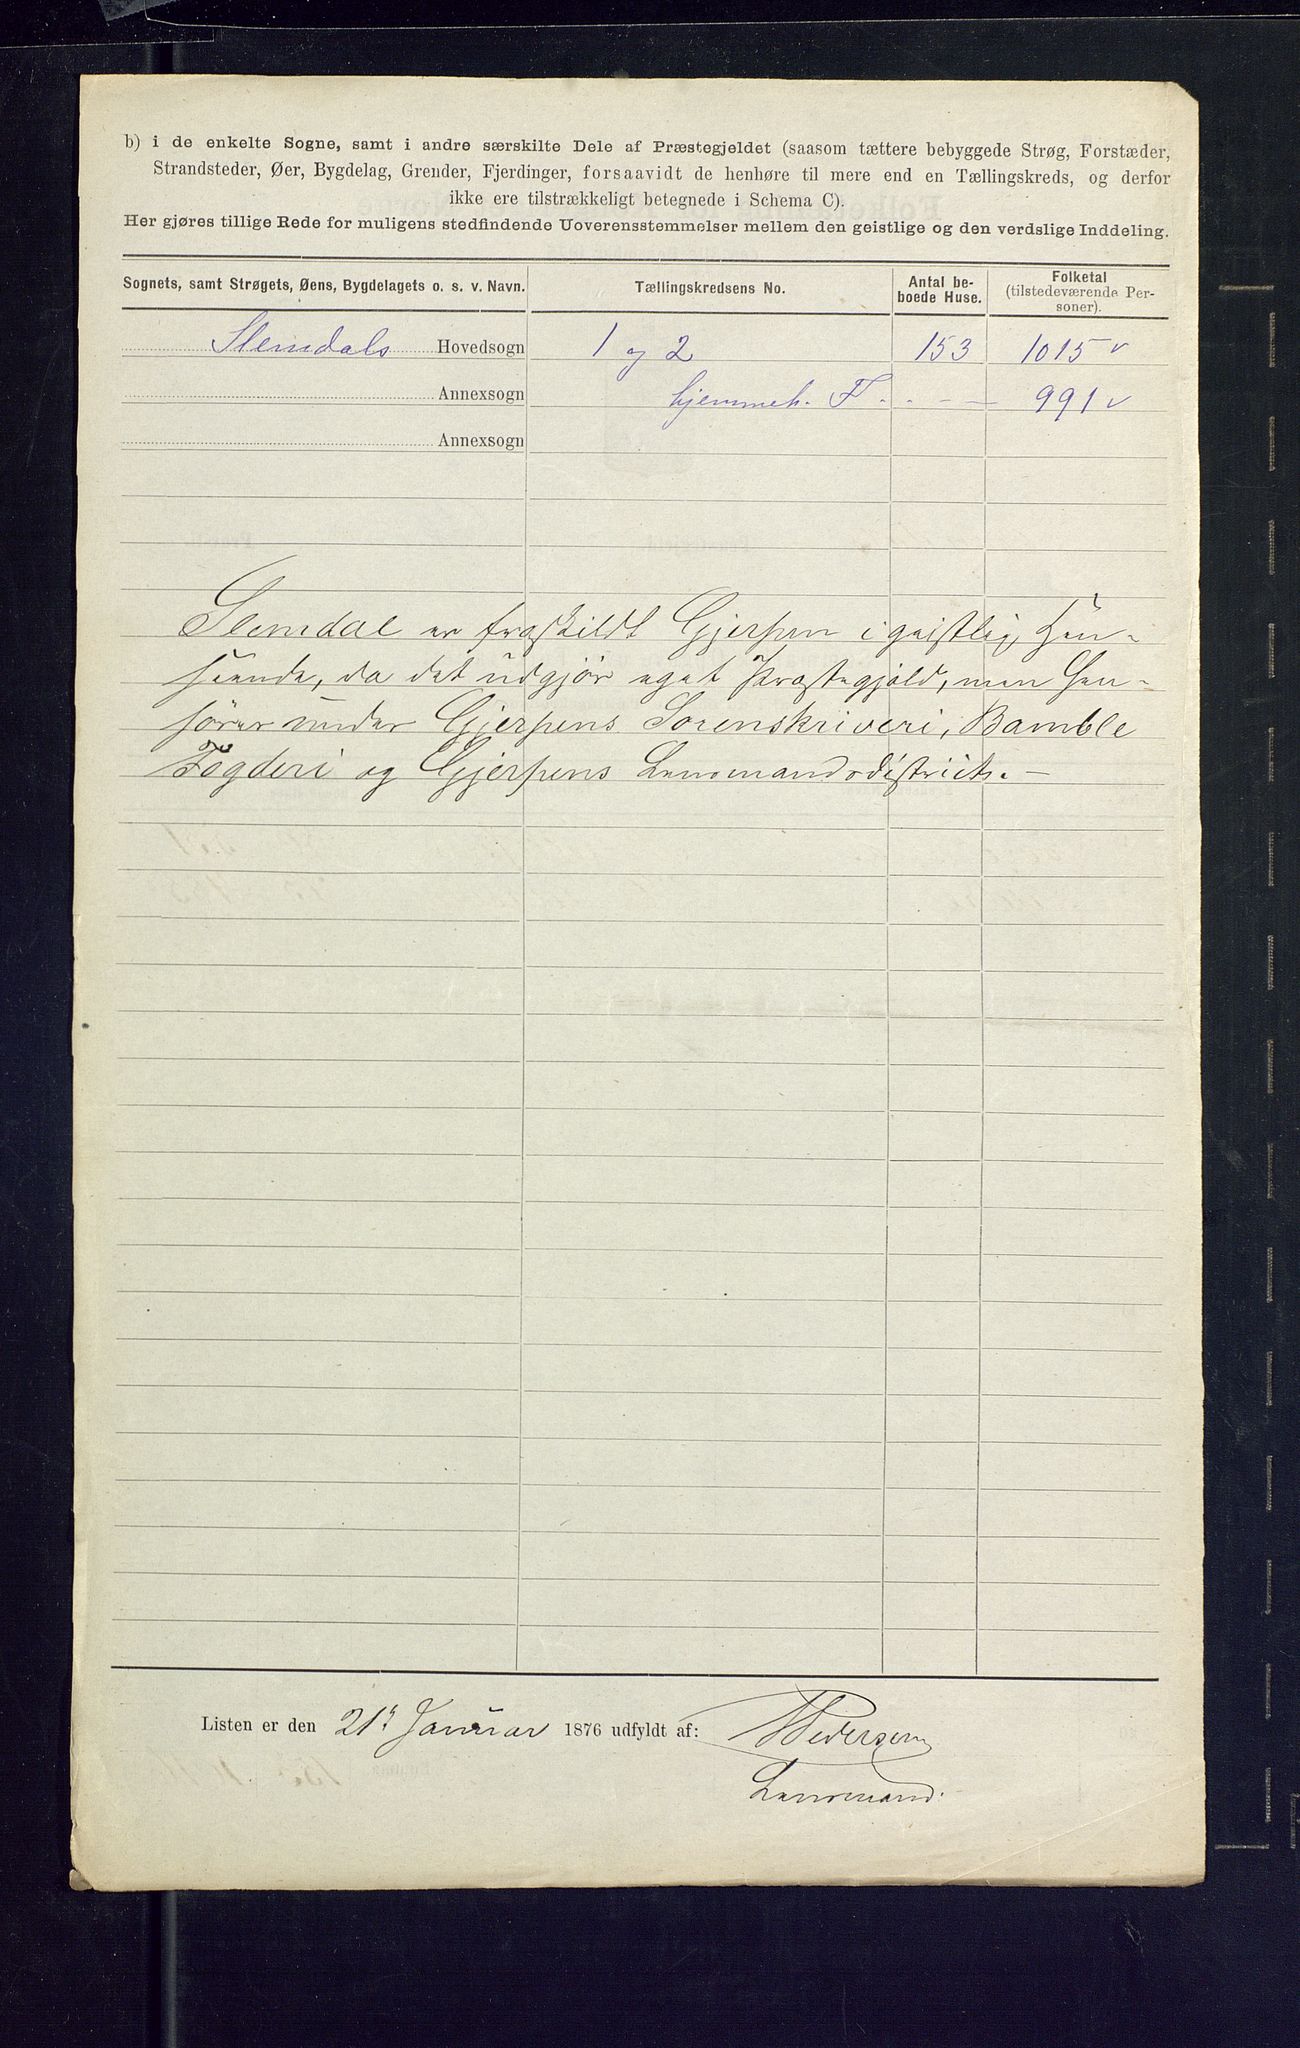 b) i de enkelte Sogne, samt i andre særskilte Dele af Præstegjeldet (saasom tættere bebyggede Strøg, Forstæder,
Strandsteder, Øer, Bygdelag, Grender, Fjerdinger, forsaavidt de henhøre til mere end en Tællingskreds, og derfor
ikke ere tilstrækkeligt betegnede i Schema C).
Her gjøres tillige Rede for muligens stedfindende Uoverensstemmelser mellem den geistlige og den verdslige Inddeling.
Sognets, samt Strøgets, Øens, Bygdelagets o. s. v. Navn. Tællingskredsens No. Antal be-boede Huse. Folketal (tilstedeværende Per-soner).
Slemdals Hovedsogn 1 og 2 153 1015 v
Annexsogn hjemmeh. F. - - - 991 v
Annexsogn
Slemdal er fraskildt Gjerpen i geistlig Hen-
seende, da det udgjør eget Præstegjeld, men hen-
hører under Gjerpens Sorenskriveri, Bamble
Fogderi og Gjerpens Lensmandsdistrikt. —
Listen er den 21de Januar 1876 udfyldt af: Pedersen
Lensmand.